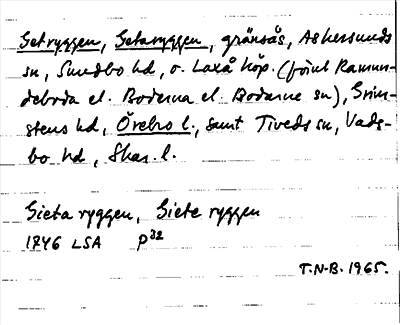 Getryggen, Getaryggen, gränsås, Askersunds
sn, Sundbo hd, o. Laxå köp. (förut Ramun-
deboda el. Boderna el. Bodarne sn), Grim-
stens hd, Örebro l., samt Tiveds sn, Vads-
bo hd, Skar. l.
Gieta ryggen, Giete ryggen
1746 LSA P32
T.N-B. 1965.